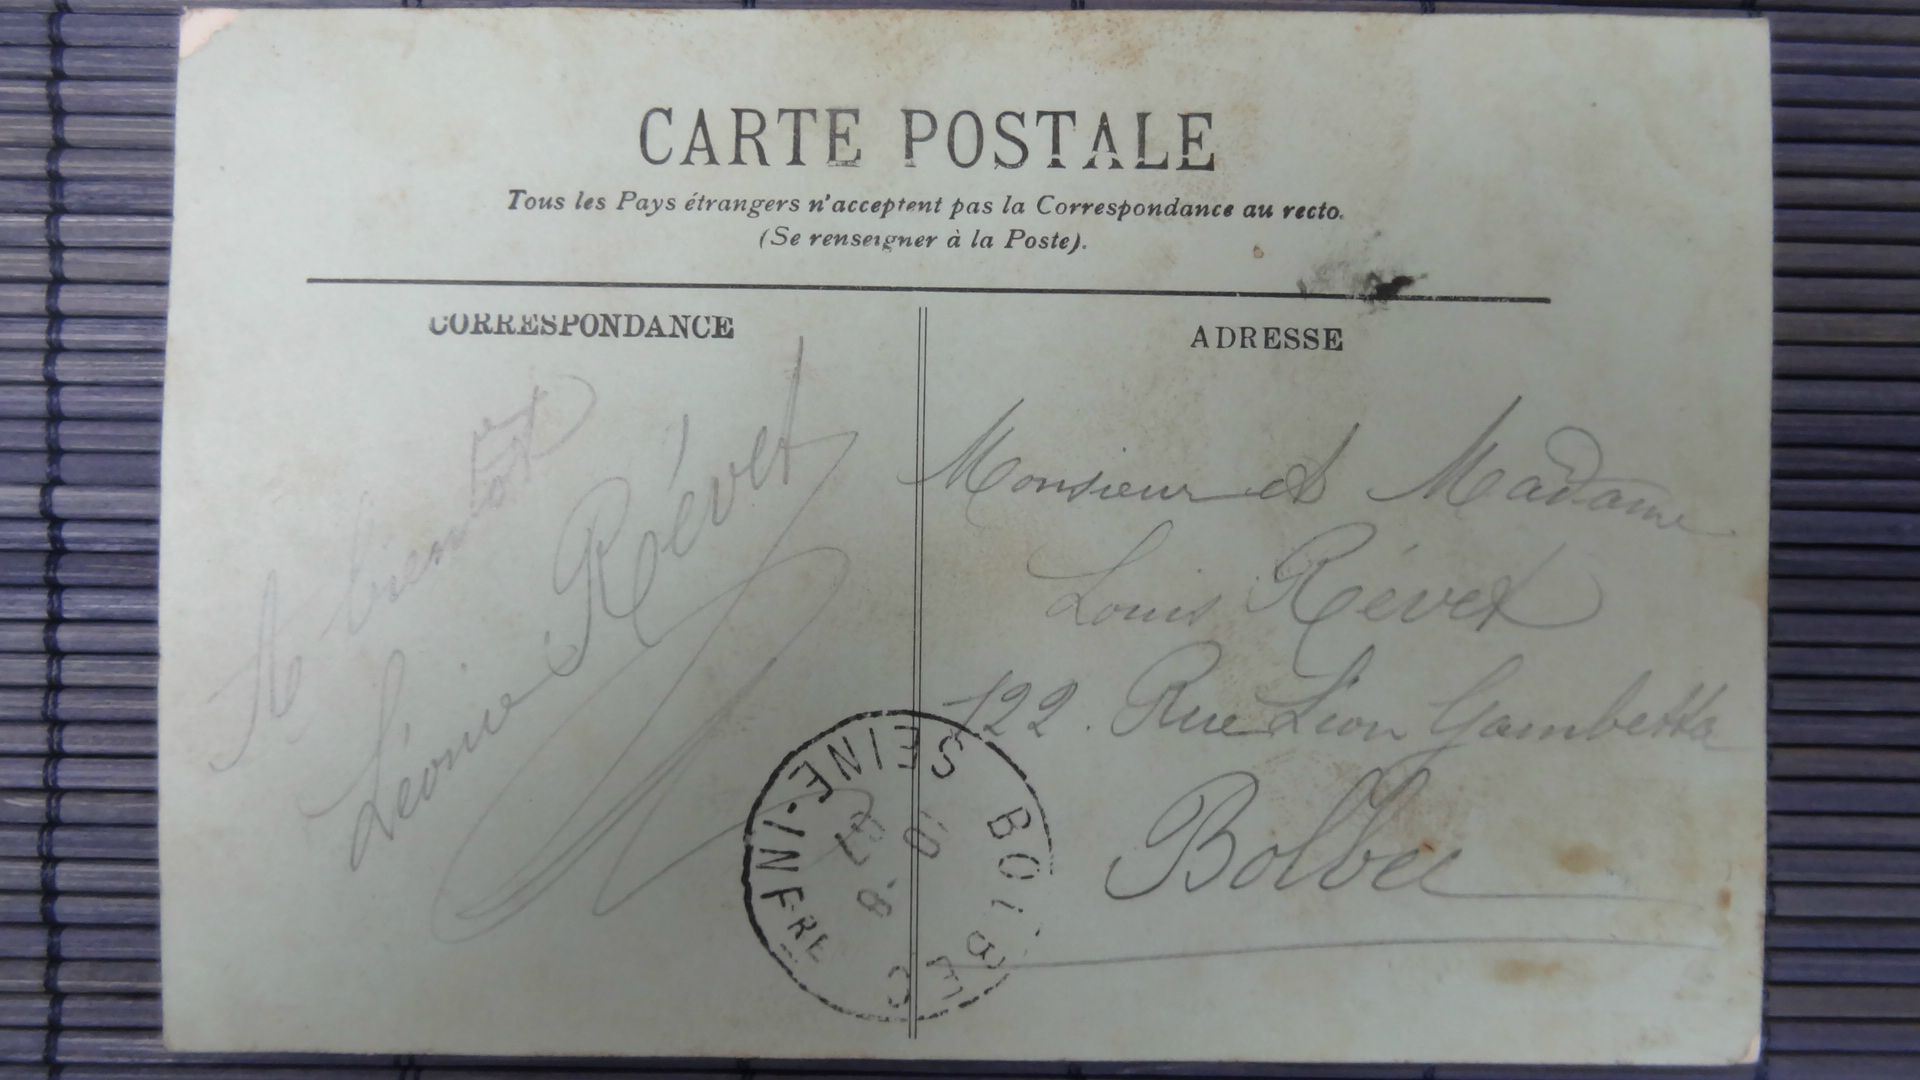 CARTE POSTALE
Tous les Pays étrangers n'acceptent pas la Correspondance au recto.
(Se renseigner à la Poste).
CORRESPONDANCE
A bientôt
Léonie Révet
ADRESSE
Monsieur et Madame
Louis Révet
122. Rue Léon Gambetta
Bolbec
BOLBEC
SEINE-INFRE